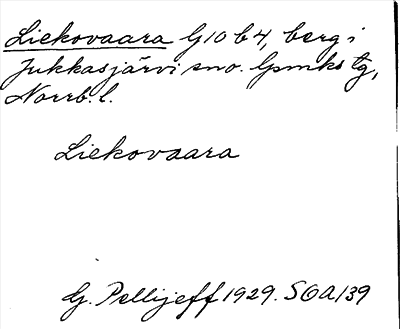 Liekovaara G10 b 4, berg i
Jukkasjärvi sno. Gpmks tg,
Norrb. l.
Liekovaara
G. Pellijeff 1929. SOA 139